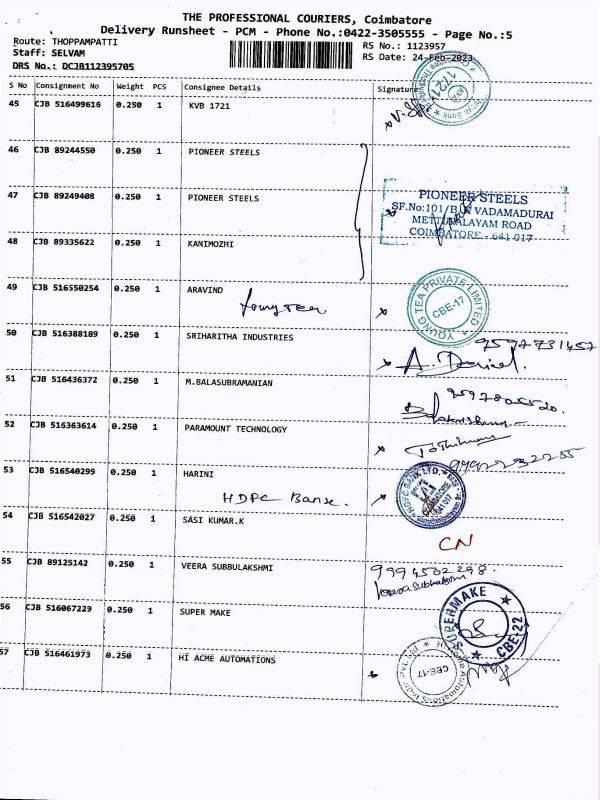 THE PROFESSIONAL COURIERS, Coimbatore
Delivery Runsheet - PCM - Phone No.:0422-3505555 - Page No.:5
Route: THOPPAMPATTI
RS No.: 1123957
Staff: SELVAM
RS Date: 24-Feb-2023
DRS No.: DCJB112395705
S No Consignment No Weight PCS Consignee Details Signature
45 CJB 516499616 0.250 1 KVB 1721
1721
46 CJB 89244550 0.250 1 PIONEER STEELS
47 CJB 89249408 0.250 1 PIONEER STEELS
PIONEER STEELS
SF.No:101/B, VADAMADURAI
METTUPALAYAM ROAD
COIMBATORE - 641 017
48 CJB 89335622 0.250 1 KANIMOZHI
49 CJB 516550254 0.250 1 ARAVIND
Young Tea
YOUNG TEA PRIVATE LIMITED
CBE-17
50 CJB 516388189 0.250 1 SRIHARITHA INDUSTRIES
9597731457
A. Daniel.
51 CJB 516436372 0.250 1 M.BALASUBRAMANIAN
9597805520.
52 CJB 516363614 0.250 1 PARAMOUNT TECHNOLOGY
53 CJB 516540299 0.250 1 HARINI
HDFC Bank.
HDFC BANK LTD.
COIMBATORE
641 017
54 CJB 516542027 0.250 1 SASI KUMAR.K
CN
55 CJB 89125142 0.250 1 VEERA SUBBULAKSHMI
9994502298.
56 CJB 516067229 0.250 1 SUPER MAKE
SUPERMAKE
CBE-22
57 CJB 516461973 0.250 1 HI ACME AUTOMATIONS
CBE-17